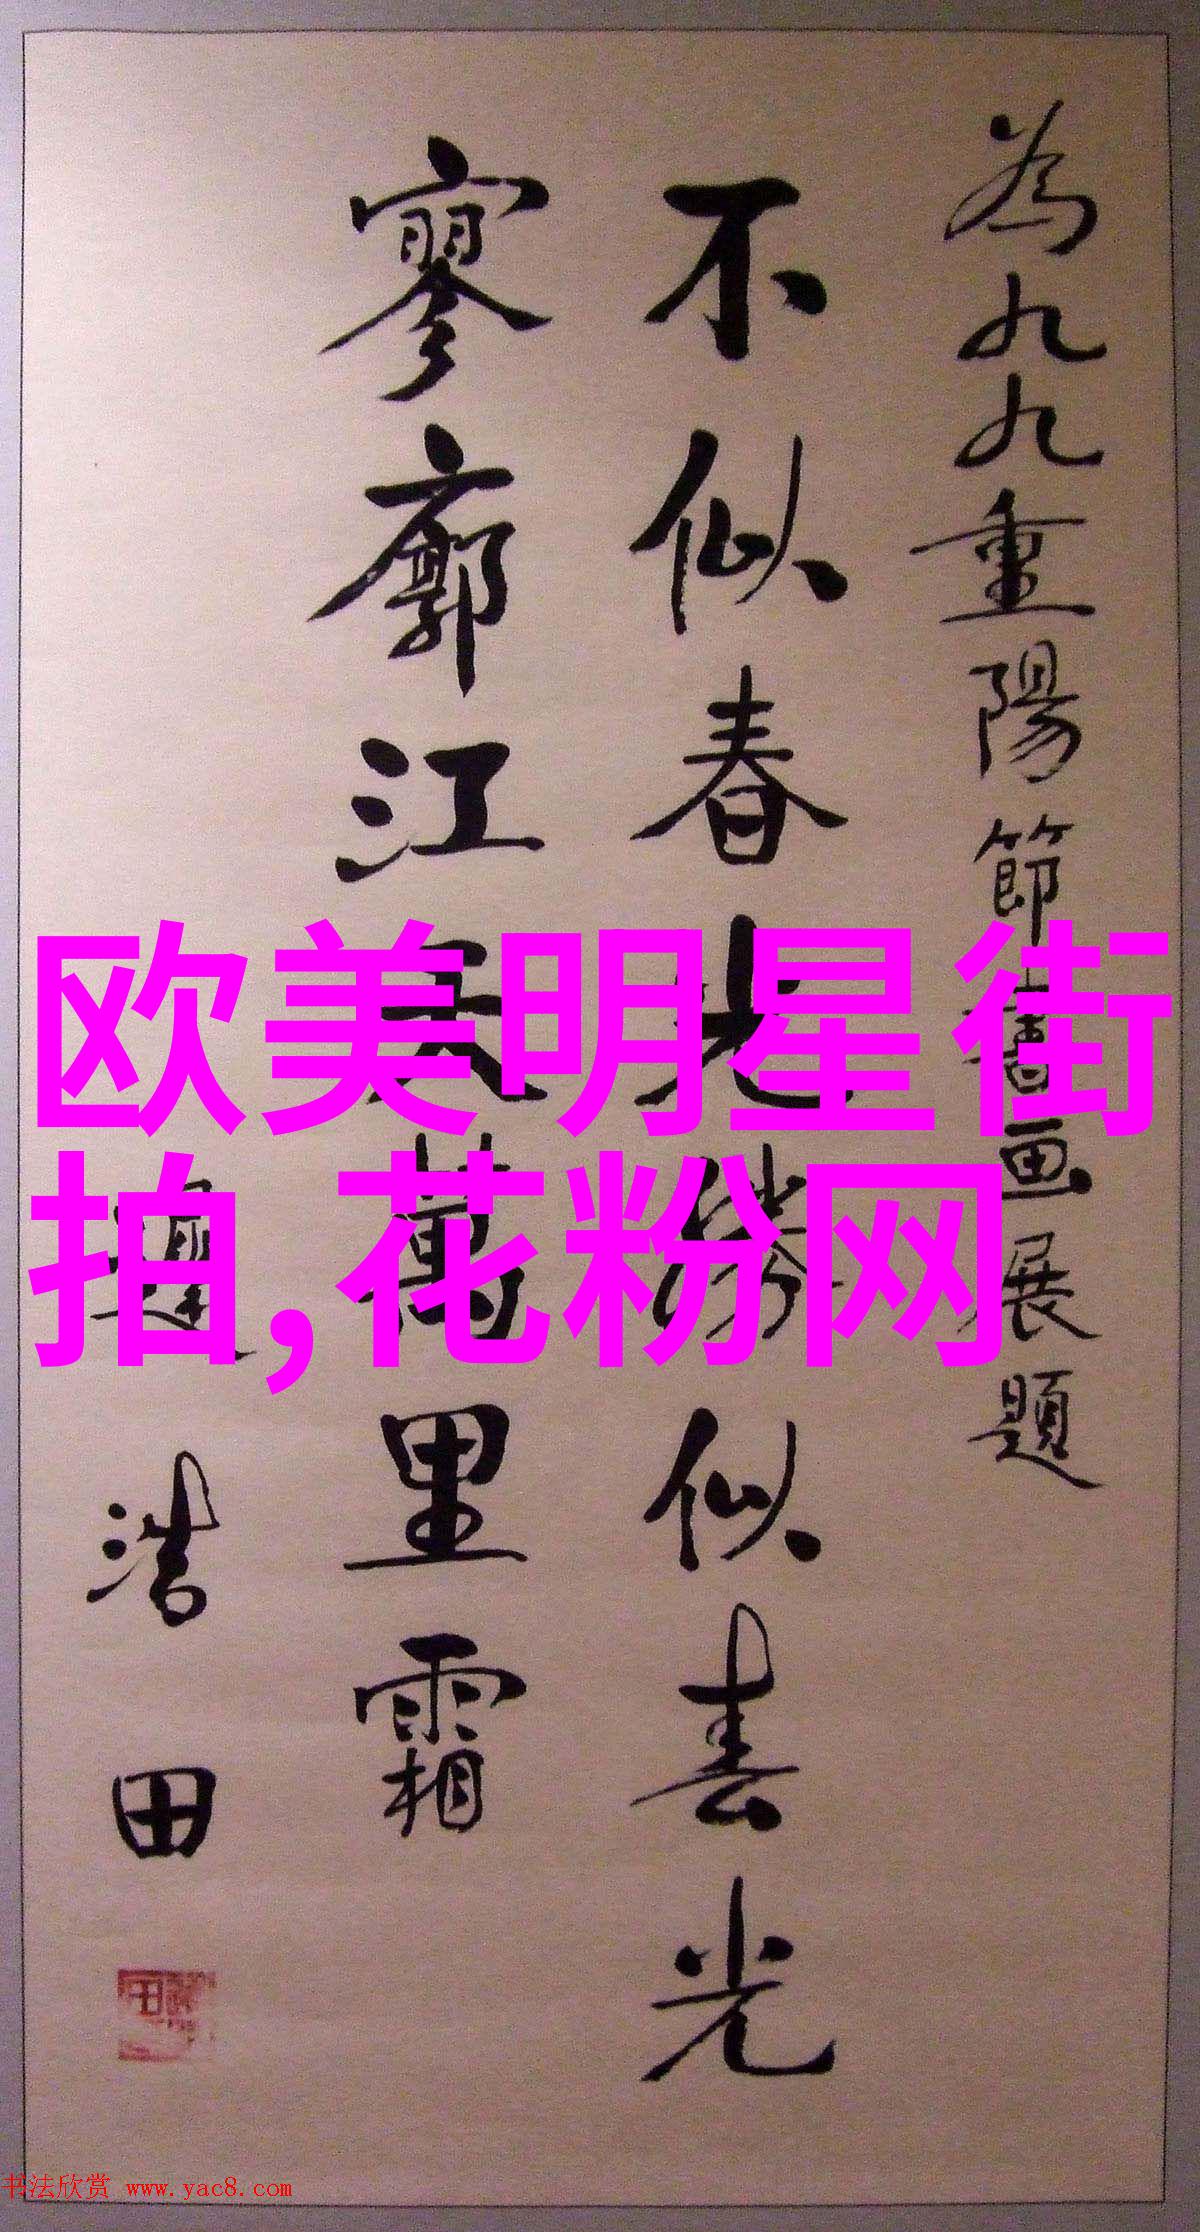 為九九重陽節書画展題
不似春光勝似春光
寥廓江天萬里霜
題 浩田
欧美明星街
拍,花粉网
书法欣赏 www.yac8.com